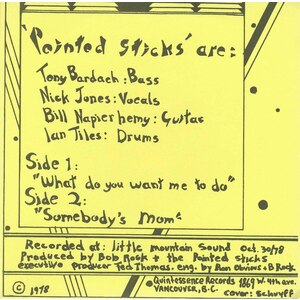 'Pointed Sticks' are:
Tony Bardach: Bass
Nick Jones: Vocals
Bill Napier hemy: Guitar
Ian Tiles: Drums
Side 1:
"What do you want me to do"
Side 2:
"Somebody's Mom"
Recorded at: little mountain sound Oct. 30/78
Produced by Bob Rock + the Pointed sticks
executive producer Ted Thomas. eng. by Ron Obvious + B Rock
© 1978
Quintessence Records 1869 W. 4th ave.
VANCOUVER, B.C.
cover: Schuyff